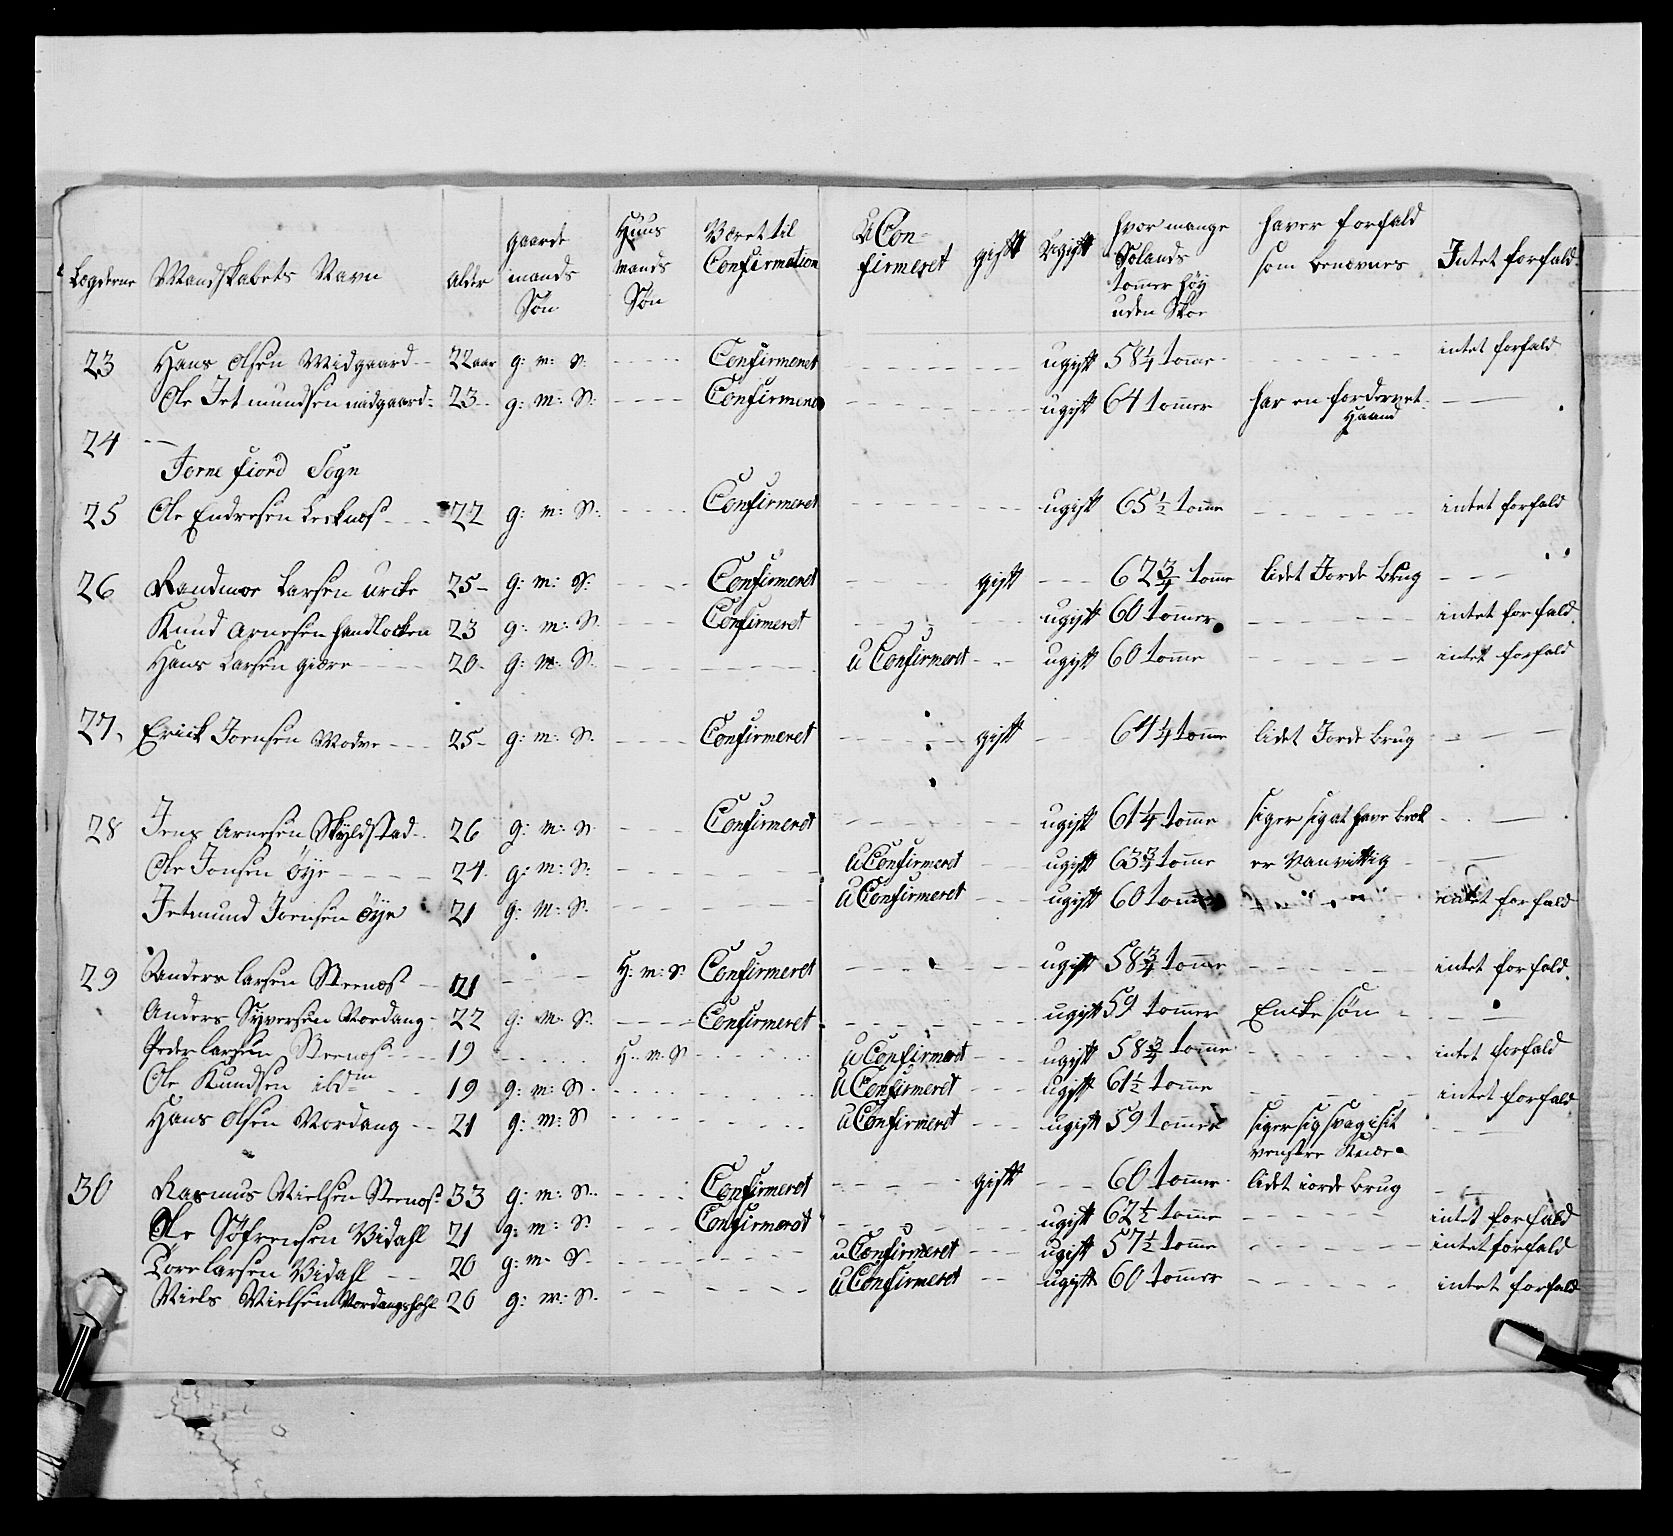 Lægderne | Mandskabets Navn | Alder | gaarde mands Søn | Huus mands Søn | Været til Confirmation | UCon-firmeret | gift | Ugift | hvor mange Solands tommer høy uden Skoe | haver forfald som benævnes | Intet forfald
23 Hans Olsen Midgaard 22 aar g: m: S: Confirmeret ugift 58¼ tomme intet forfald
Ole Jetmundsen midgaard 23 g: m: S: Confirmeret ugift 64 tommer har en fordervet Haand
24
Jørnefiord Sogn
25 Ole Endresen Lecknæs 22 g: m: S: Confirmeret ugift 65½ tomme intet forfald
26 Randmoe Larsen Urcke 25 g: m: S: Confirmeret gift 62¾ tomme lidet Jorde brug
Knud Arnesen handlocken 23 g: m: S: Confirmeret ugift 60 tommer intet forfald
Hans Larsen giære 20 g: m: S: UConfirmeret ugift 60 tomme intet forfald
27 Erick Jonsen Modve 25 g: m: S: Confirmeret gift 64¼ tomme lidet Jorde brug
28 Jens Arnesen Skyldstad 26 g: m: S: Confirmeret ugift 61¼ tomme siger sig at have brok
Ole Jonsen Øye 24 g: m: S: UConfirmeret ugift 63¾ tomme er Vanvittig
Jetmund Jonsen Øye 21 g: m: S: UConfirmeret ugift 60 tomme intet forfald
29 Anders Larsen Steenæs 21 H: m: S: Confirmeret ugift 58¾ tomme intet forfald
Anders Syversen Nordang 22 g: m: S: Confirmeret ugift 59 tommer Encke søn
Peder Larsen Steenæs 19 H: m: S UConfirmeret ugift 58¾ tomme intet forfald
Ole Knudsen ibdm 19 g: m: S: UConfirmeret ugift 61½ tomme intet forfald
Hans Olsen Nordang 21 g: m: S UConfirmeret ugift 59 tommer siger sig svag i sit venstre Knæe
30 Rasmus Nielsen Steenæs 33 g: m: S: Confirmeret gift 60 tommer lidet iorde brug
Ole Søfrensen Vidahl 21 g: m: S: Confirmeret ugift 62½ tomme intet forfald
Tore Larsen Vidahl 20 g: m: S: uConfirmeret ugift 57½ tomme intet forfald
Niels Nielsen Nordangshohl 20 g: m: S: UConfirmeret ugift 60 tommer intet forfald